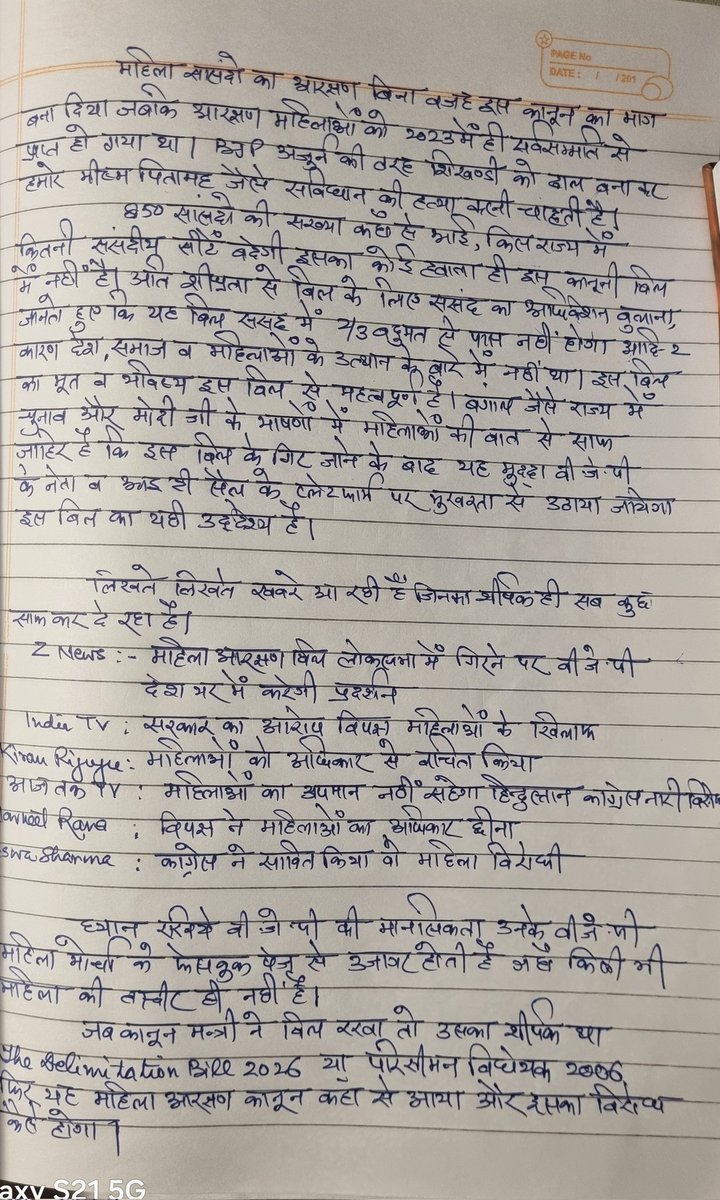 PAGE No
DATE : / / 201
महिला सांसदो का आरक्षण बिना वजह इस कानून का भाग
बना दिया जबकि आरक्षण महिलाओं को 2023 में ही सर्वसम्मति से
प्राप्त हो गया था। BJP अर्जुन की तरह शिखण्डी को ढाल बना कर
हमारे भीष्म पितामह जैसे संविधान की हत्या करनी चाहती है।
850 सांसदो की संख्या कहाँ से आई, किस राज्य में
कितनी संसदीय सीटें बढ़ेगी इसका कोई हवाला ही इस कानूनी बिल
में नहीं है। अति शीघ्रता से बिल के लिए संसद का अधिवेशन बुलाना,
जानते हुए कि यह बिल संसद में 2/3 बहुमत से पास नहीं होगा आदि-2
कारण देश, समाज व महिलाओं के उत्थान के बारे में नहीं था। इस बिल
का भूत व भविष्य इस बिल से महत्वपूर्ण है। बंगाल जैसे राज्य में
चुनाव और मोदी जी के भाषणों में महिलाओं की बात से साफ
जाहिर है कि इस बिल के गिर जाने के बाद यह मुद्दा बी जे पी
के नेता व आई टी सैल के प्लेटफार्म पर मुखरता से उठाया जायेगा
इस बिल का यही उद्देश्य है।
लिखते लिखते खबरे आ रही हैं जिनका शीर्षक ही सब कुछ
साफ कर दे रहा है।
Z News :- महिला आरक्षण बिल लोकसभा में गिरने पर बी जे पी
देश भर में करेगी प्रदर्शन
India TV : सरकार का आरोप विपक्ष महिलाओं के खिलाफ
Kiran Rijuju : महिलाओं को अधिकार से वंचित किया
आज तक TV : महिलाओं का अपमान नहीं सहेगा हिन्दुस्तान कांग्रेस नारी विरोध
Rana : विपक्ष ने महिलाओं का अधिकार छीना
Sharma : कांग्रेस ने साबित किया वो महिला विरोधी
ध्यान रखिये बी जे पी की मानसिकता उनके बी जे पी
महिला मोर्चा के फेसबुक पेज से उजागर होती है जहाँ किसी भी
महिला की तस्वीर ही नहीं है।
जब कानून मन्त्री ने बिल रखा तो उसका शीर्षक था
The Delimitation Bill 2026 या परिसीमन विधेयक 2006
फिर यह महिला आरक्षण कानून कहा से आया और इसका विरोध
कैसे होगा।
axy S21 5G